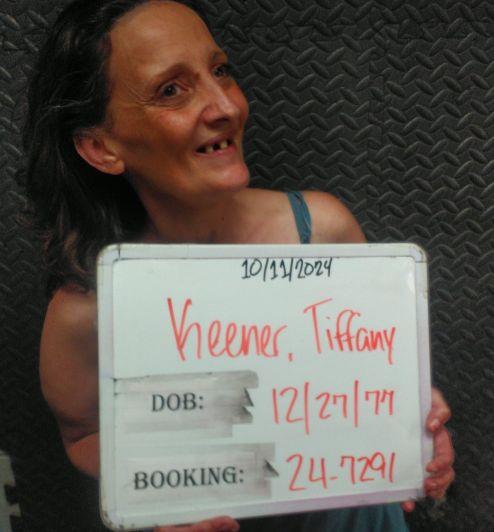 10/11/2024
Keener, Tiffany
DOB: 12/27/77
BOOKING: 24-7291